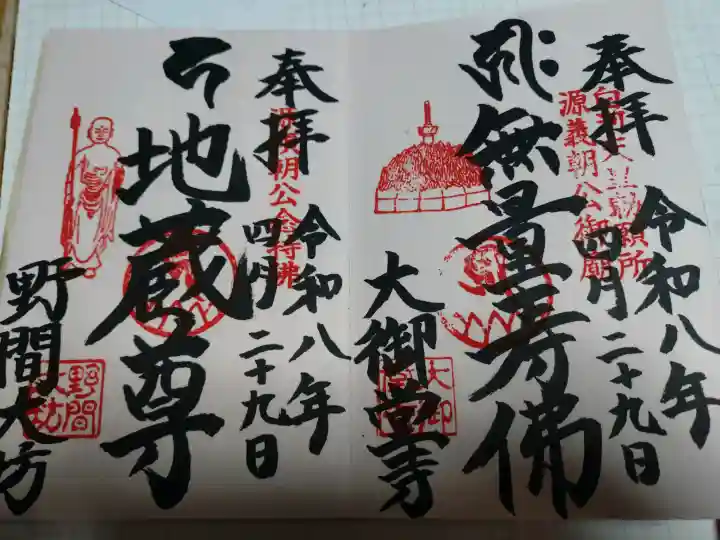 奉拝
白河天皇勅願所
源義朝公御廟
令和八年
四月二十九日
無量寿佛
大御堂寺
大御
奉拝
源義朝公念持佛
令和八年
四月二十九日
地蔵尊
野間大坊
野間
大坊